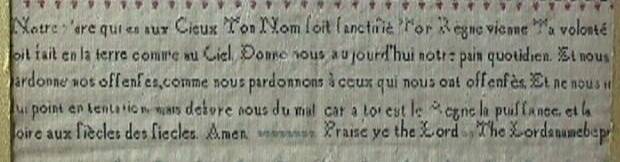 Notre Pere qui es aux Cieux Ton Nom soit sanctifiè Ton Regne vienne Ta volonté
oit fait en la terre comme au Ciel. Donne nous aujourd'hui notre pain quotidien. Et nous
ardonne nos offenses, comme nous pardonnons à ceux qui nous ont offensès. Et ne nous
point en tentation mais delivre nous du mal car a toi est le Regne la puissance, et la
oire aux siècles des siecles. Amen. Praise ye the Lord . The Lordsnamebepr